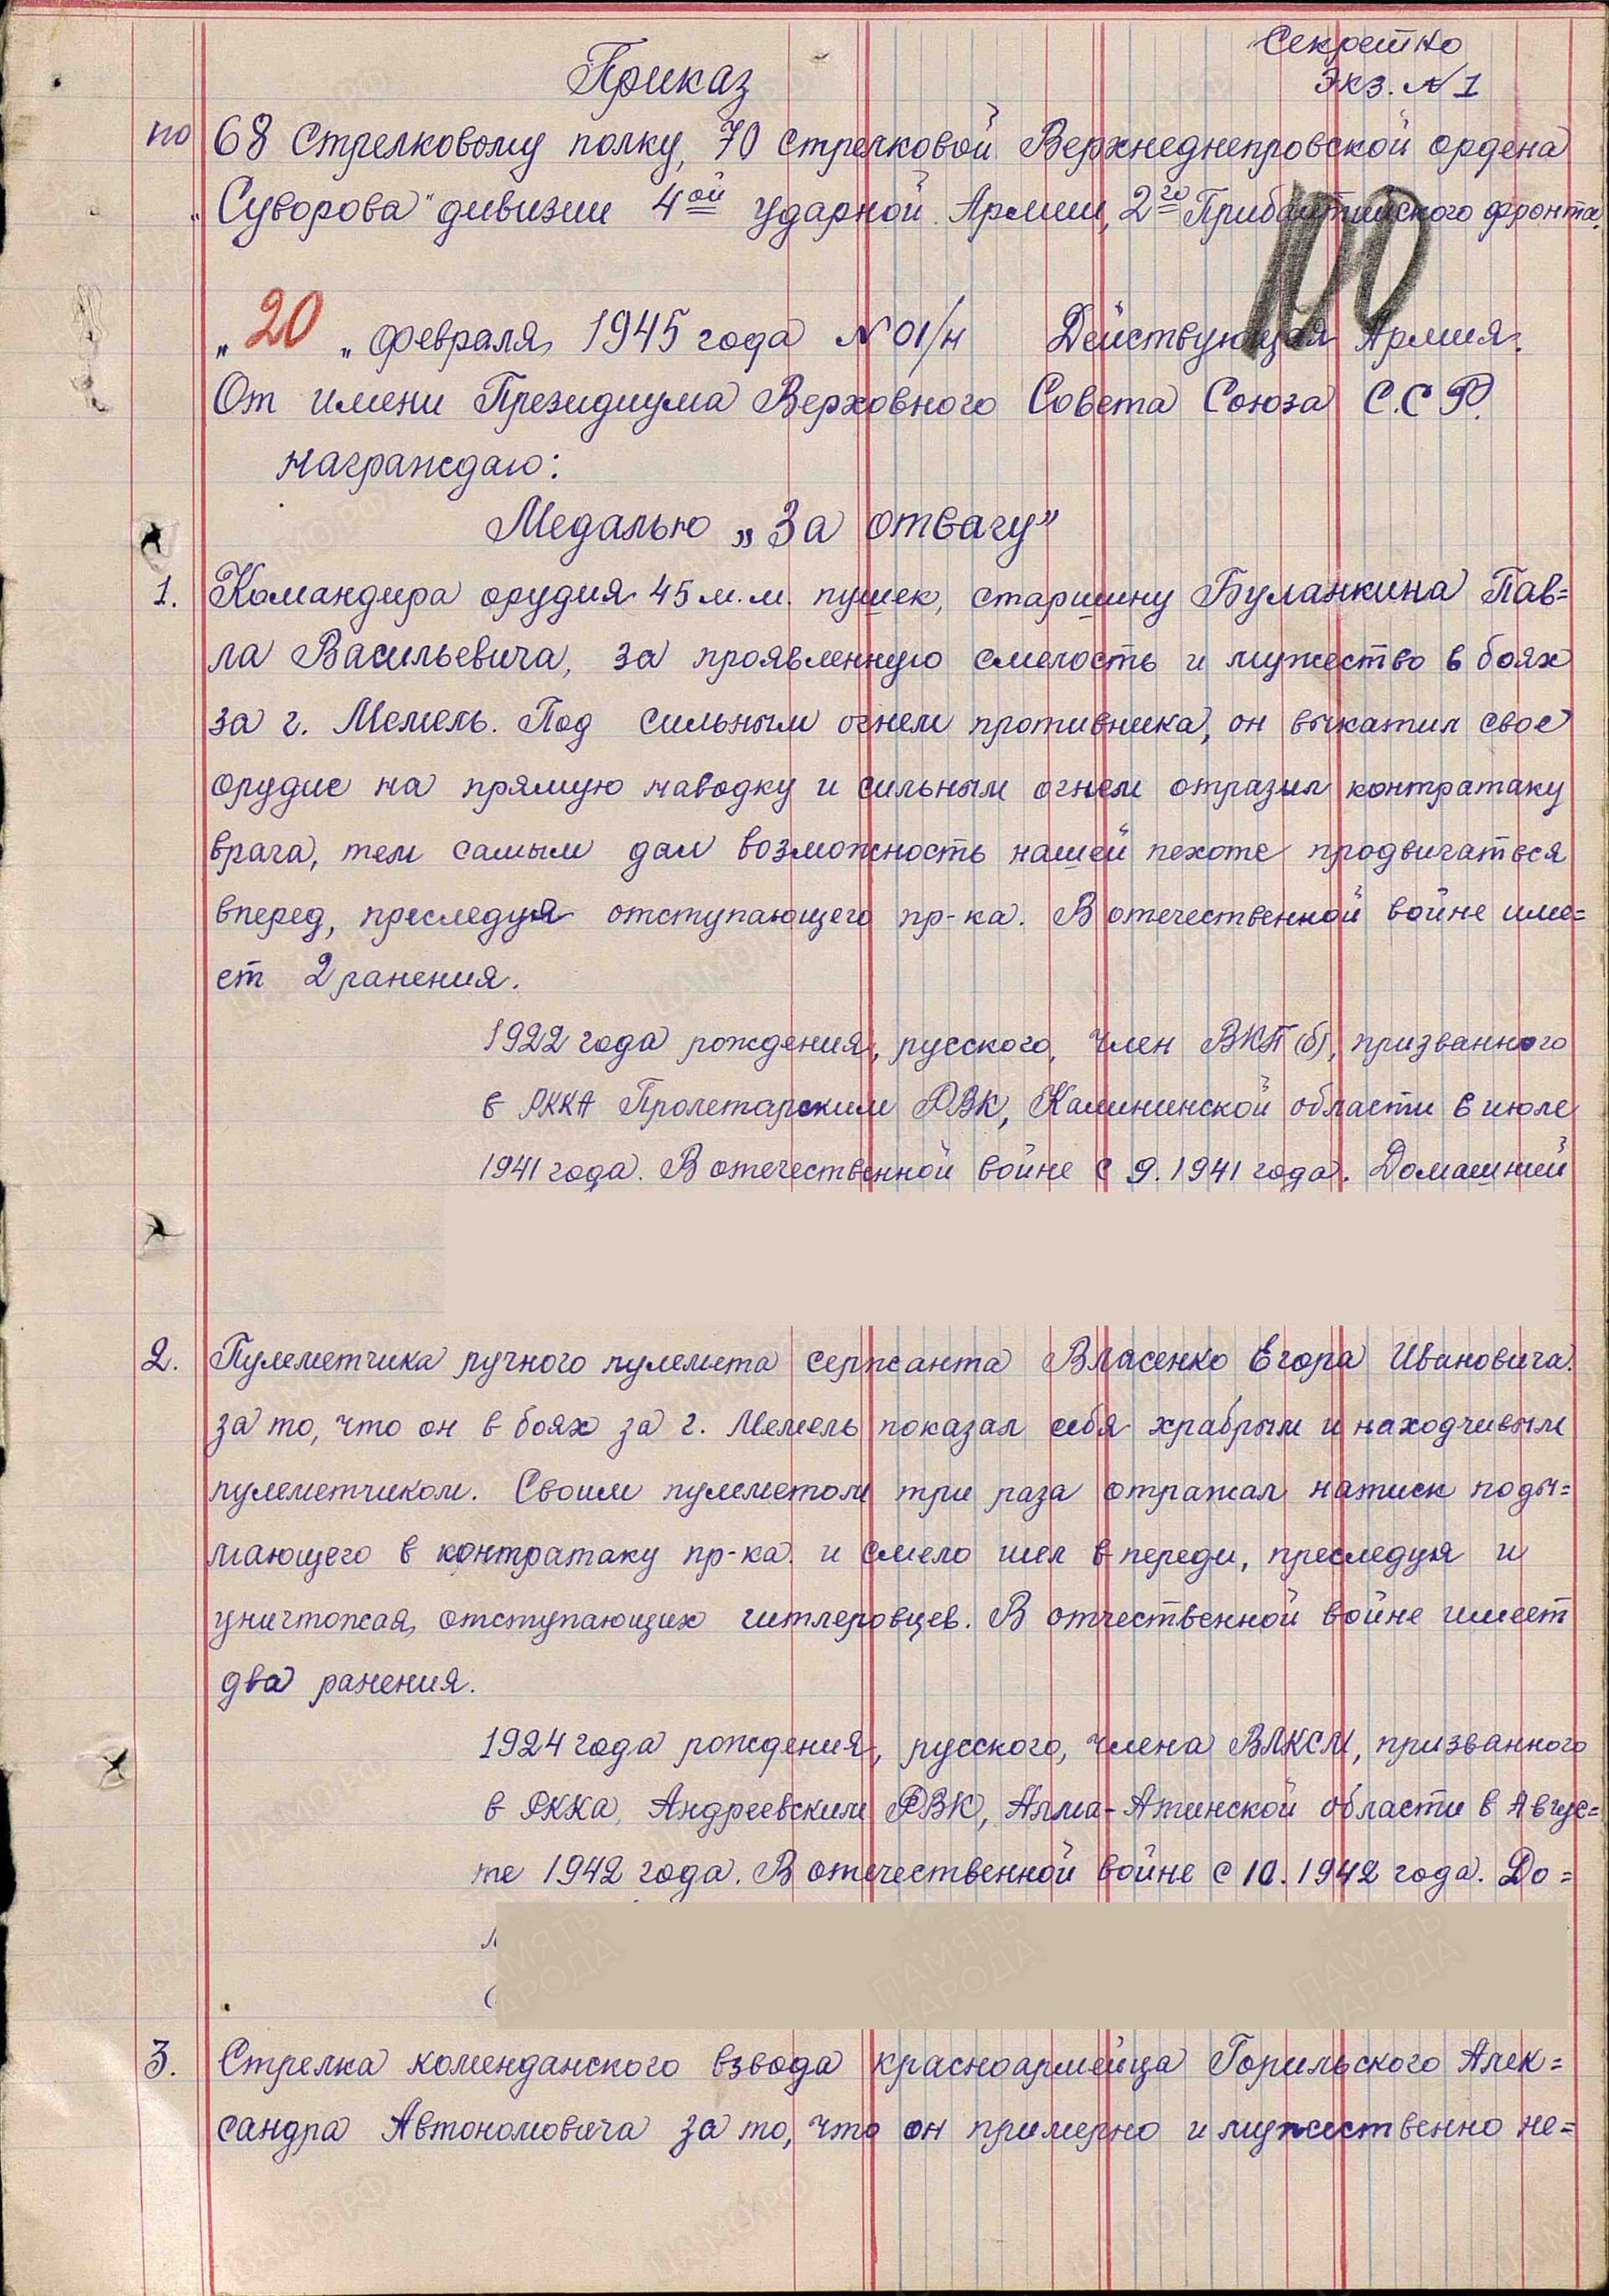 Секретно
Экз. № 1
Приказ
по 68 стрелковому полку, 70 стрелковой Верхнеднепровской ордена
„Суворова" дивизии 4ой ударной Армии, 2го Прибалтийского фронта.
100
„20„ февраля 1945 года № 01/н Действующая Армия.
От имени Президиума Верховного Совета Союза С.С.Р.
награждаю:
Медалью „За отвагу"
1. Командира орудия 45 м.м. пушек, старшину Буланкина Пав=
ла Васильевича, за проявленную смелость и мужество в боях
за г. Мемель. Под сильным огнем противника, он выкатил свое
орудие на прямую наводку и сильным огнем отразил контратаку
врага, тем самым дал возможность нашей пехоте продвигаться
вперед, преследуя отступающего пр-ка. В отечественной войне име=
ет 2 ранения.
1922 года рождения, русского, член ВКП(б), призванного
в РККА Пролетарским РВК, Калининской области в июле
1941 года. В отечественной войне с 9.1941 года. Домашний
2. Пулеметчика ручного пулемета сержанта Власенко Егора Ивановича.
за то, что он в боях за г. Мемель показал себя храбрым и находчивым
пулеметчиком. Своим пулеметом три раза отражал натиск поды=
мающего в контратаку пр-ка и смело шел впереди, преследуя и
уничтожая отступающих гитлеровцев. В отчественной войне имеет
два ранения.
1924 года рождения, русского, члена ВЛКСМ, призванного
в РККА, Андреевским РВК, Алма-Атинской области в Авгус=
те 1942 года. В отечественной войне с 10.1942 года. До=
3. Стрелка коменданского взвода красноармейца Горильского Алек=
сандра Автономовича за то, что он примерно и мужественно не=
ПАМЯТЬ НАРОДА